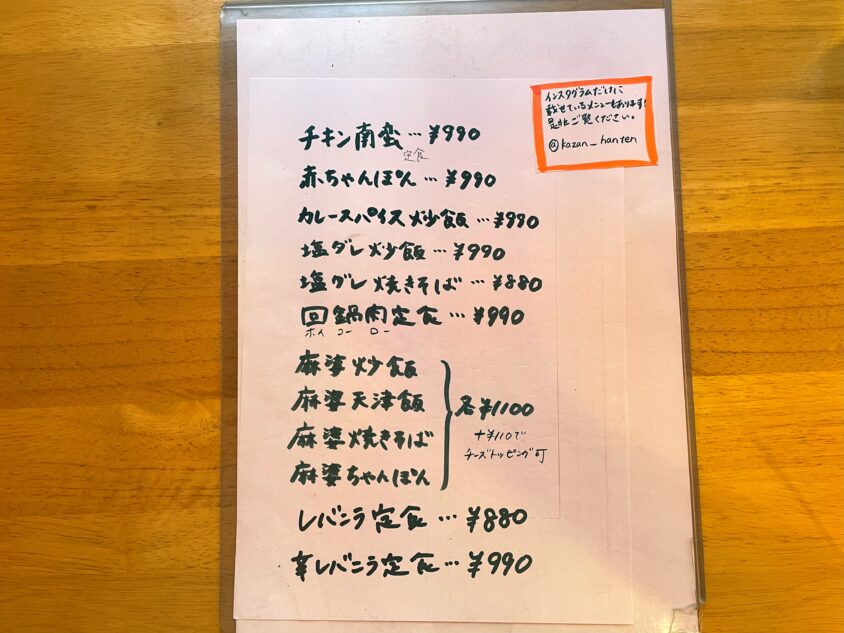 インスタグラムだけに
載せているメニューもあります!
是非ご覧ください。
@kazan_hanten
チキン南蛮…¥990
定食
赤ちゃんぽん…¥990
カレースパイス炒飯…¥990
塩ダレ炒飯…¥990
塩ダレ焼きそば…¥880
回鍋肉定食…¥990
ホイコーロー
麻婆炒飯
麻婆天津飯
麻婆焼きそば
麻婆ちゃんぽん
各¥1100
+¥110で
チーズトッピング可
レバニラ定食…¥880
辛レバニラ定食…¥990